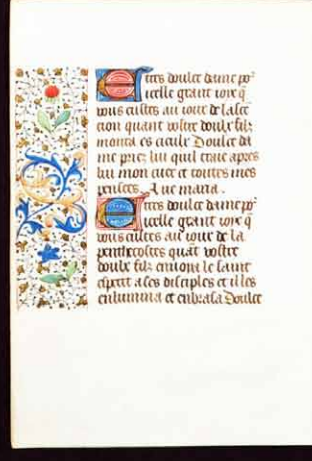 Et tres doulce dame po^r
icelle grant ioye q̄
vous eustes au iour de lasce
cion quant vostre doulx filz
monta es cieulx Doulce da
me priez lui quil traie apres
lui mon cuer et toutes mes
pensees. Aue maria.
Et tres doulce dame po^r
icelle grant ioye q̄
vous eustes au iour de la
penthecostes quāt vostre
doulx filz enuoia le saint
esperit a ses disciples et il les
enlumina et enbrasa Doulce